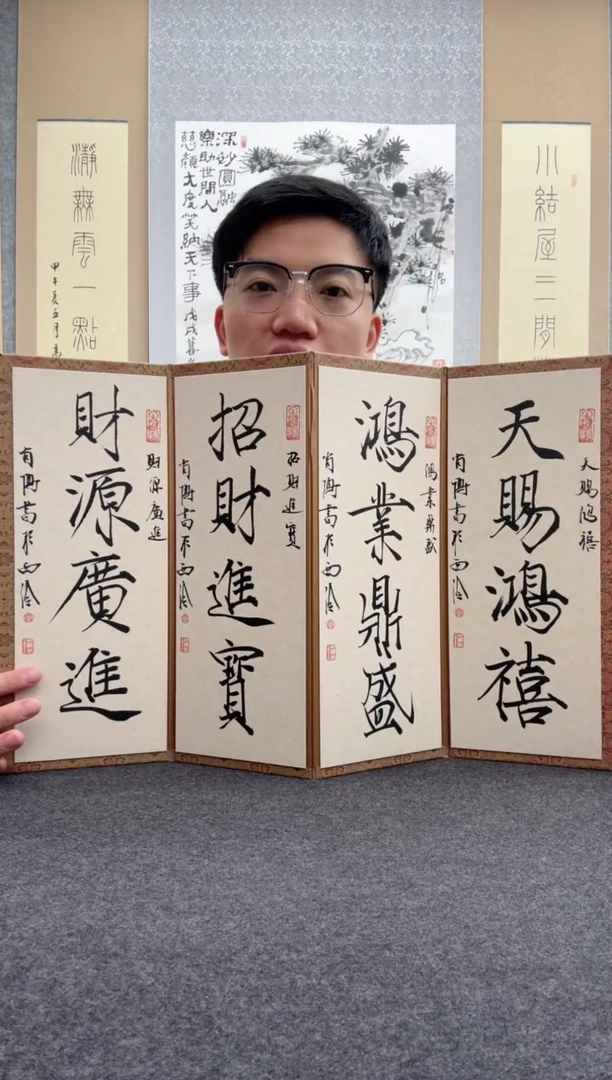 小結屋三間
深妙圓融
樂助世間人
慈顏大度笑納天下事
戊戌
瀞無雲一點
甲午夏五月
天賜鴻禧
天賜鴻禧
書於西泠
鴻業鼎盛
鴻業鼎盛
書於西泠
招財進寶
招財進寶
書於西泠
財源廣進
財源廣進
書於西泠